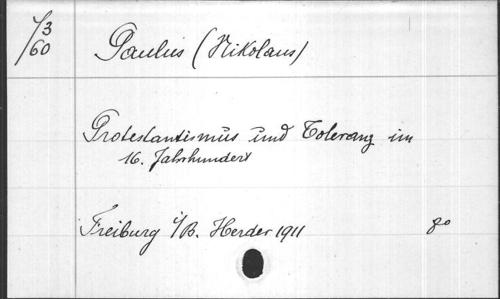 √3
60
Paulus (Nikolaus)
Protestantismus und Toleranz im
16. Jahrhundert
Freiburg i/B. Herder 1911 8o